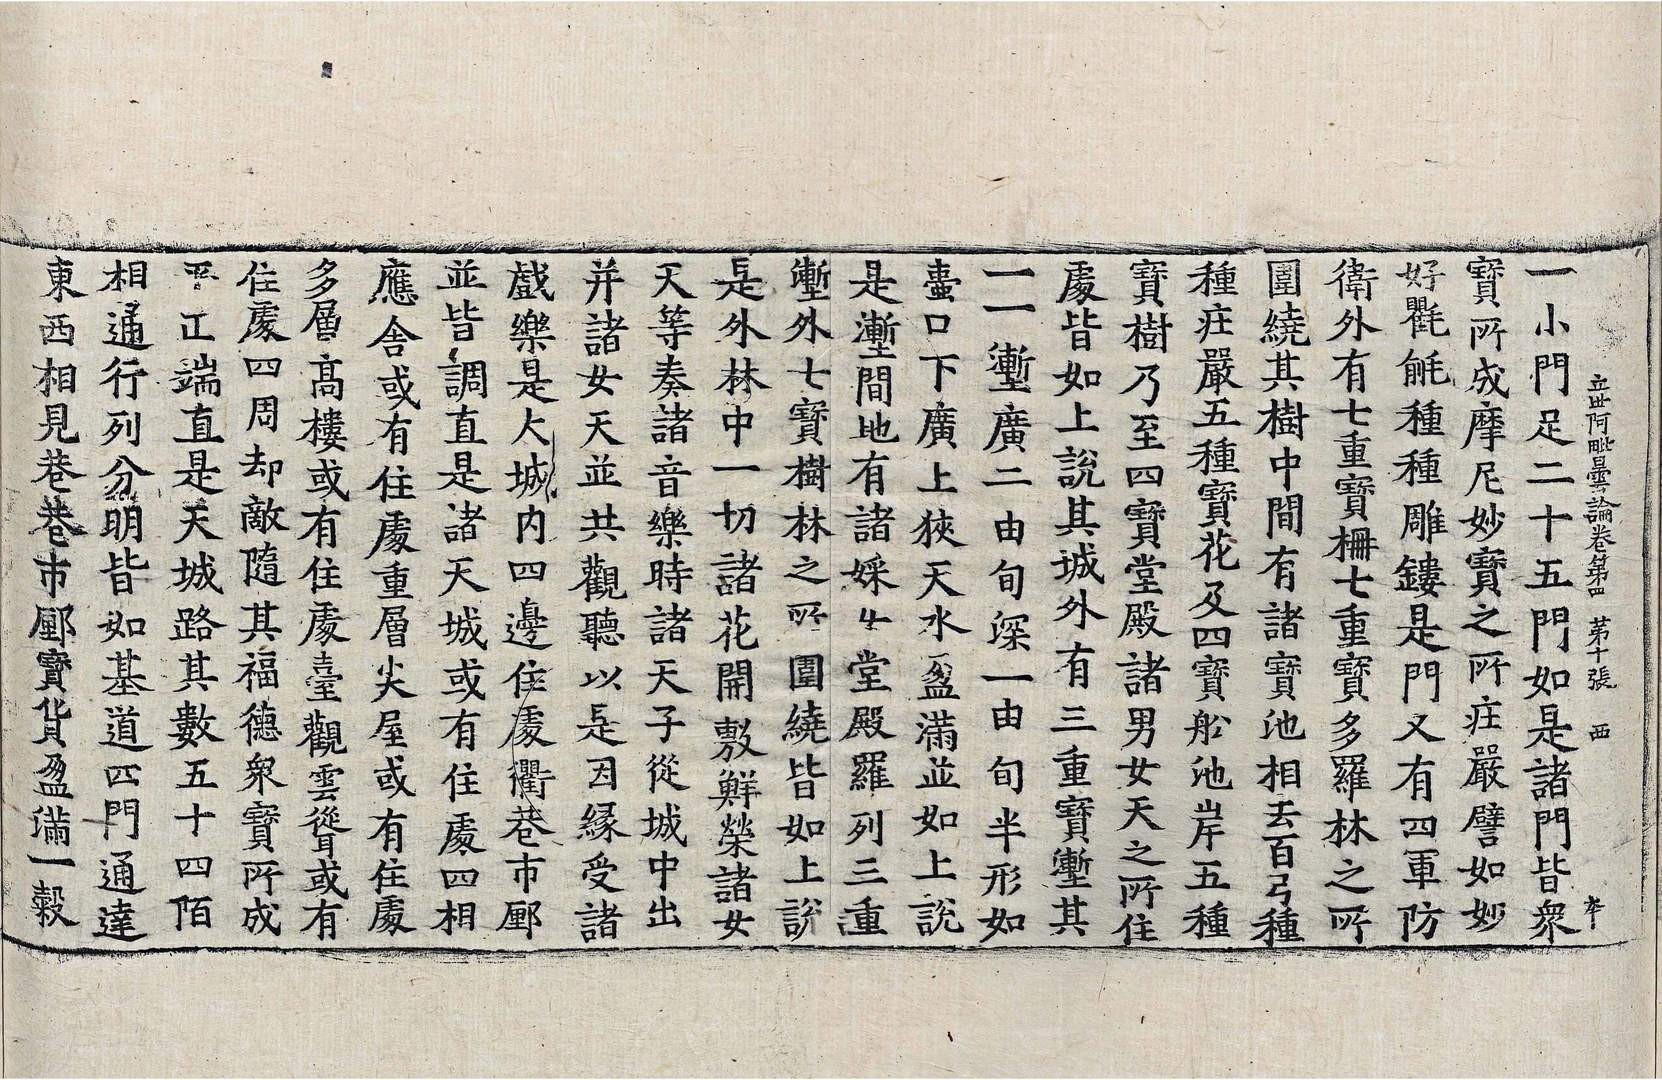 立世阿毗曇論卷第四 第十張 西
一小門足二十五門如是諸門皆衆
寶所成摩尼妙寶之所庄嚴譬如妙
好氍毹種種雕鏤是門又有四軍防
衛外有七重寶柵七重寶多羅林之所
圍繞其樹中間有諸寶池相去百弓種
種庄嚴五種寶花及四寶船池岸五種
寶樹乃至四寶堂殿諸男女天之所住
處皆如上說其城外有三重寶壍其
一一壍廣二由旬深一由旬半形如
壷口下廣上狹天水盈滿並如上說
是壍間地有諸婇女堂殿羅列三重
壍外七寶樹林之所圍繞皆如上說
是外林中一切諸花開敷鮮榮諸女
天等奏諸音樂時諸天子從城中出
并諸女天並共觀聽以是因緣受諸
戲樂是大城內四邊住處衢巷市鄽
並皆調直是諸天城或有住處四相
應舍或有住處重層尖屋或有住處
多層高樓或有住處臺觀雲聳或有
住處四周却敵隨其福德衆寶所成
平正端直是天城路其數五十四陌
相通行列分明皆如基道四門通達
東西相見巷巷市鄽寶貨盈滿一穀